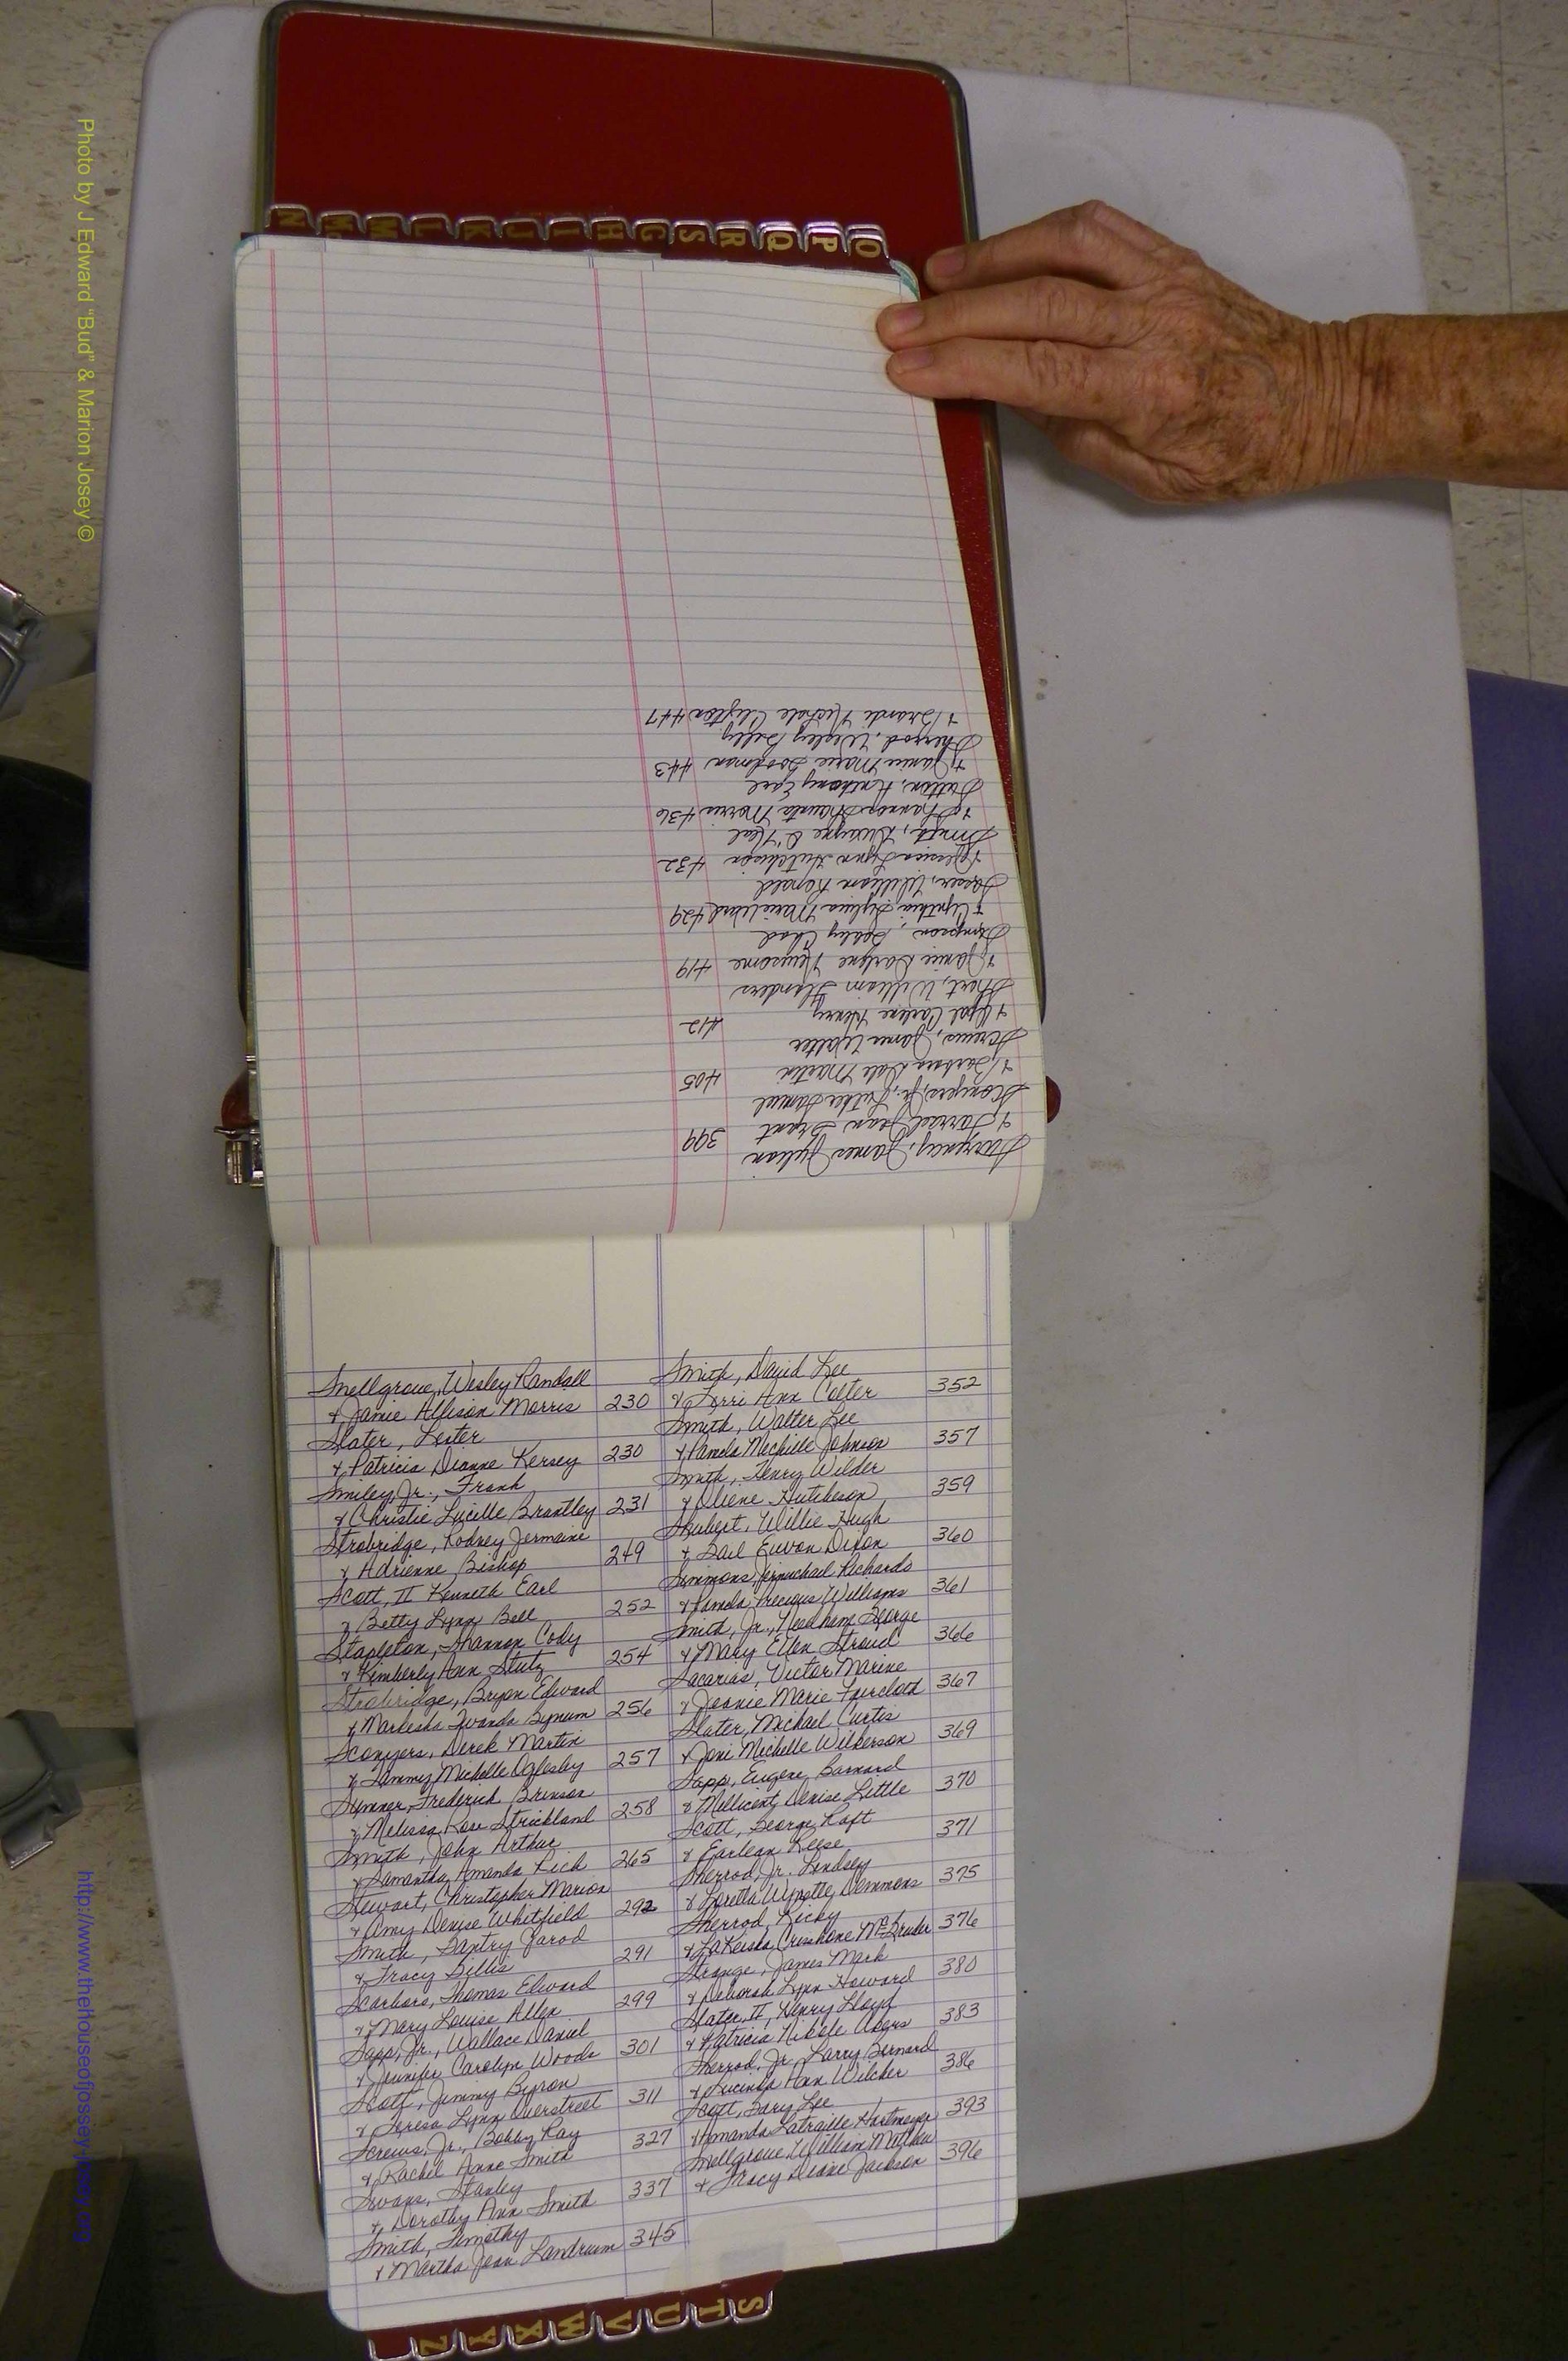 Snellgrove, Wesley Randall
& Jamie Allison Morris 230
Slater, Lester
& Patricia Dianne Kersey 230
Smiley, Jr., Frank
& Christie Lucille Brantley 231
Strobridge, Rodney Jermaine
& Adrienne Bishop 249
Scott, II Kenneth Earl
& Betty Lynn Bell 252
Stapleton, Shannon Cody
& Kimberly Ann Stutz 254
Strobridge, Bryon Edward
& Markesha Bynum 256
Sconyers, Derek Martin
& Tammy Michelle Oglesby 257
Sumner, Frederick Brinson
& Melissa Rose Strickland 258
Smith, John Arthur
& Samantha Amanda Rich 265
Stewart, Christopher Marion
& Amy Denise Whitfield 292
Smith, Jarod
& Tracy Gillis 291
Scarboro, Thomas Edward
& Mary Louise Allen 299
Sapp, Jr., Wallace Daniel
& Jennifer Carolyn Woods 301
Scott, Jimmy Byron
& Teresa Lynn Overstreet 311
Screws, Jr., Bobby Ray
& Rachel Anne Smith 327
Swans, Stanley
& Dorothy Ann Smith 337
Smith, Timothy
& Martha Jean Landrum 345
Smith, David Lee
& Terri Ann Colter 352
Smith, Walter Lee
& Pamela Mechille Johnson 357
Smith, Henry Wilder
& Oliene Hutcheson 359
Shubert, Willie Hugh
& Gail Euvon Dixon 360
Simmons, Jermichael Richardo
& Precious Williams 361
Smith, Jr., Needham George
& Mary Ellen Stroud 366
Sacarias, Victor Marine
& Jeanie Marie Faircloth 367
Slater, Michael Curtis
& Joni Michelle Wilkerson 369
Sapp, Eugene Barnard
& Millicent Denise Little 370
Scott, George Raft
& Earlean Reese 371
Sherrod, Jr. Lindsey
& Loretta Wynette Demmons 375
Sherrod, Ricky
& LaKeisha McGruder 376
Strange, James Mark
& Deborah Lynn Howard 380
Slater, II, Henry Lloyd
& Patricia Nikole Akers 383
Sherrod, Jr., Larry Bernard
& Lucinda Ann Wilcher 386
Scott, Gary Lee
& Amanda Hartmeyer 393
Snellgrove, William Mathew
& Tracy Diane Jackson 396
Swerency, James Julian
& Jean Bryant 399
Sconyers, Jr., Luther Samuel
& Barbara Dale Martin 405
Screws, James Walter
& Opal Carlene Henry 412
Short, William Flanders
& Janice Darlene Newsome 419
Simpson, Bobby Chad
& Cynthia Marie Ward 429
Sasser, William Ronald
& Jessica Lynn Hutchison 432
Smith, Dwayne O'Neal
& Shannon Morris 436
Sutton, Anthony Earl
& Janice Marie Goodman 443
Sherrod, Wesley Billy
& Brandi Nichole Clayton 447
N M M L K J I H G S R Q P O
S T U V W X Y Z
Photo by J Edward "Bud" & Marion Josey ©
http://www.thehouseofjossey-josey.org